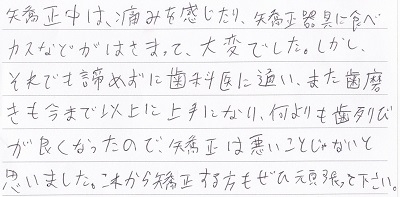 矢喬正中は、痛みを感じたり、矢喬正器具に食べ
カスなどがはさまって、大変でした。しかし、
それでも諦めずに歯科医に通い、また歯磨
きも今まで以上に上手になり、何よりも歯列び
が良くなったので、矯正は悪いことじゃないと
思いました。これから矯正する方もぜひ頑張って下さい。